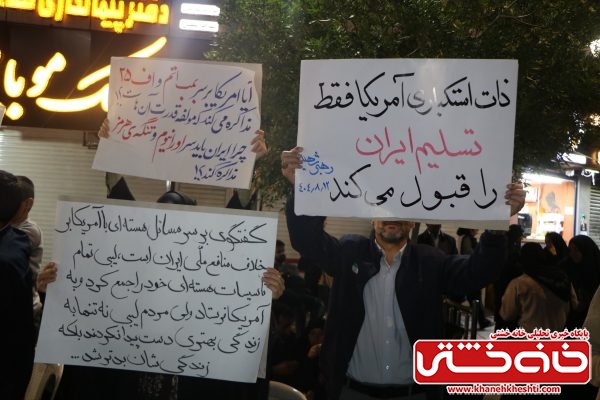 دفتر پیمانکاری
موبا
آیا آمریکا بر سر بمب اتم و اف ۳۵
مذاکره می‌کند که مولفه قدرت آن‌ها است؟!
چرا ایران باید سر اورانیوم و تنگه‌ی هرمز
مذاکره کند؟!
ذات استکباری آمریکا فقط
تسلیم ایران
را قبول می‌کند
رهبر شهید
۴۰۴،۸،۱۲
گفتگوی بر سر مسائل هسته‌ای با آمریکا بر
خلاف منافع ملی ایران است، لیبی تمام
تاسیسات هسته‌ای خود را جمع کرد و به
آمریکا فرستاد ولی مردم لیبی نه تنها به
زندگی بهتری دست پیدا نکردند بلکه
زندگی‌شان بدتر شد...
پایگاه خبری تحلیلی خانه خشتی
خانه خشتی
www.khanehkheshti.com